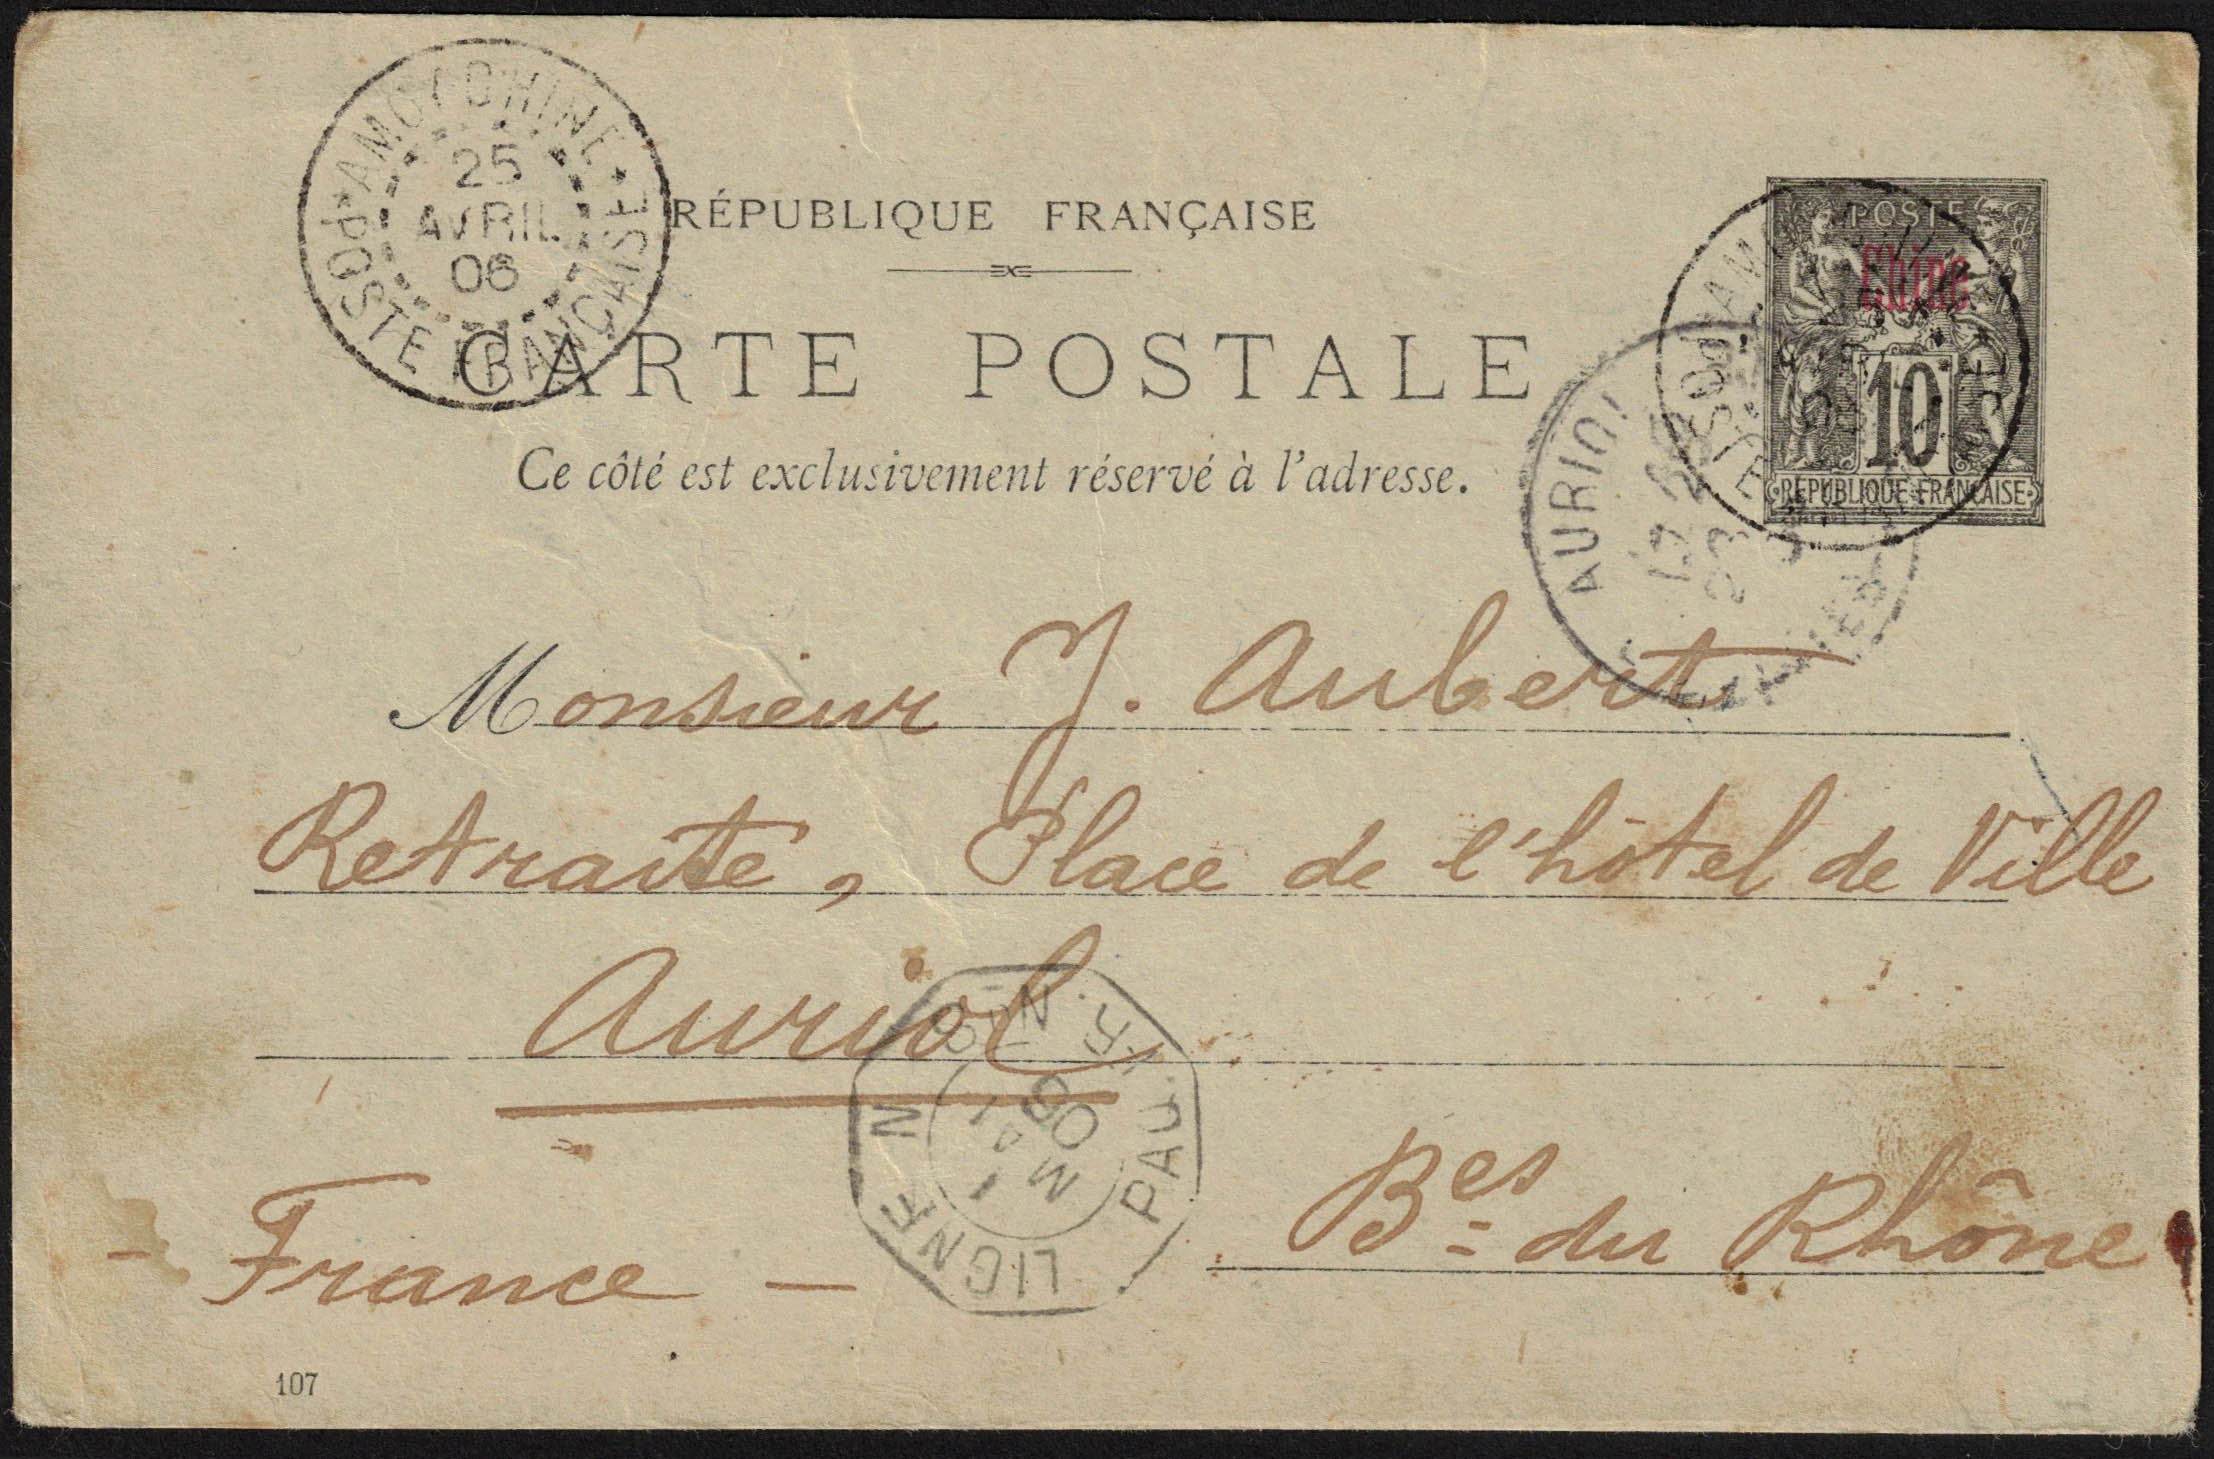 AMOY CHINE
25
AVRIL
06
POSTE FRANÇAISE
RÉPUBLIQUE FRANÇAISE
CARTE POSTALE
Ce côté est exclusivement réservé à l'adresse.
POSTE
Chine
10
RÉPUBLIQUE FRANÇAISE
AURIOL
Monsieur J. Aubert
Retraité, Place de l'hôtel de Ville
Auriol
LIGNE N
PAQ. FR. N
1 MAI
06
Bes du Rhône
- France -
107